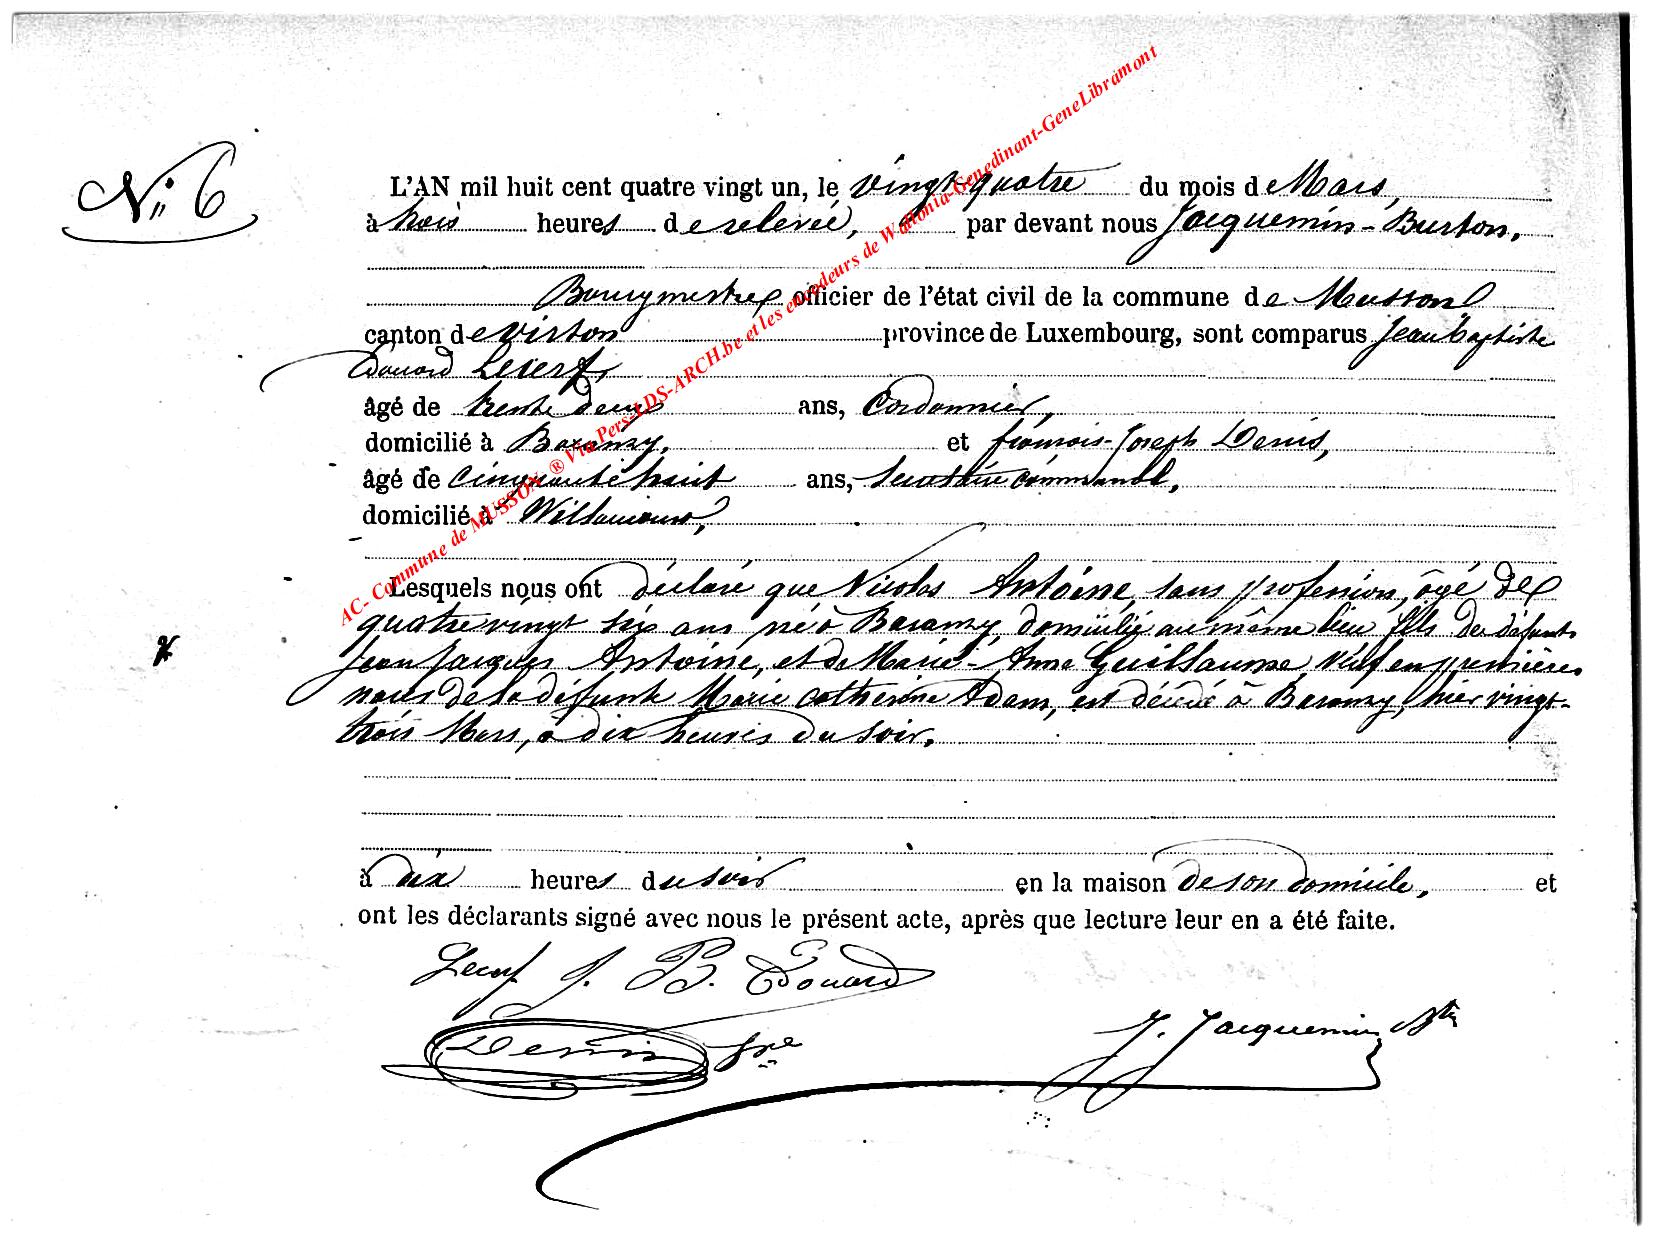 N° 6
L'AN mil huit cent quatre vingt un, le vingt quatre du mois de Mars,
à trois heures de relevée, par devant nous Jacquemin-Burton,
Bourgmestre officier de l'état civil de la commune de Musson
canton de Virton province de Luxembourg, sont comparus Jean Baptiste
Edouard Lecerf,
âgé de trente deux ans, Cordonnier,
domicilié à Baranzy, et françois-Joseph Denis,
âgé de cinquante huit ans, Secrétaire communal,
domicilié à Willancourt,
Lesquels nous ont déclaré que Nicolas Antoine, sans profession, âgé de
quatre vingt six ans né à Baranzy, domicilié au même lieu fils de défunts
Jean Jacques Antoine, et de Marie-Anne Guillaume, Veuf en premières
noces de la défunte Marie Catherine Adam, est décédé à Baranzy, hier vingt-
trois Mars, à dix heures du soir.
à dix heures du soir en la maison de son domicile, et
ont les déclarants signé avec nous le présent acte, après que lecture leur en a été faite.
Lecerf J. B. Edouard
Denis Sre
J. Jacquemin Btn
AC- Commune de MUSSON ® Via Pers-LDS-ARCH.be et les encodeurs de Wallonia-Genedinant-GeneLibramont